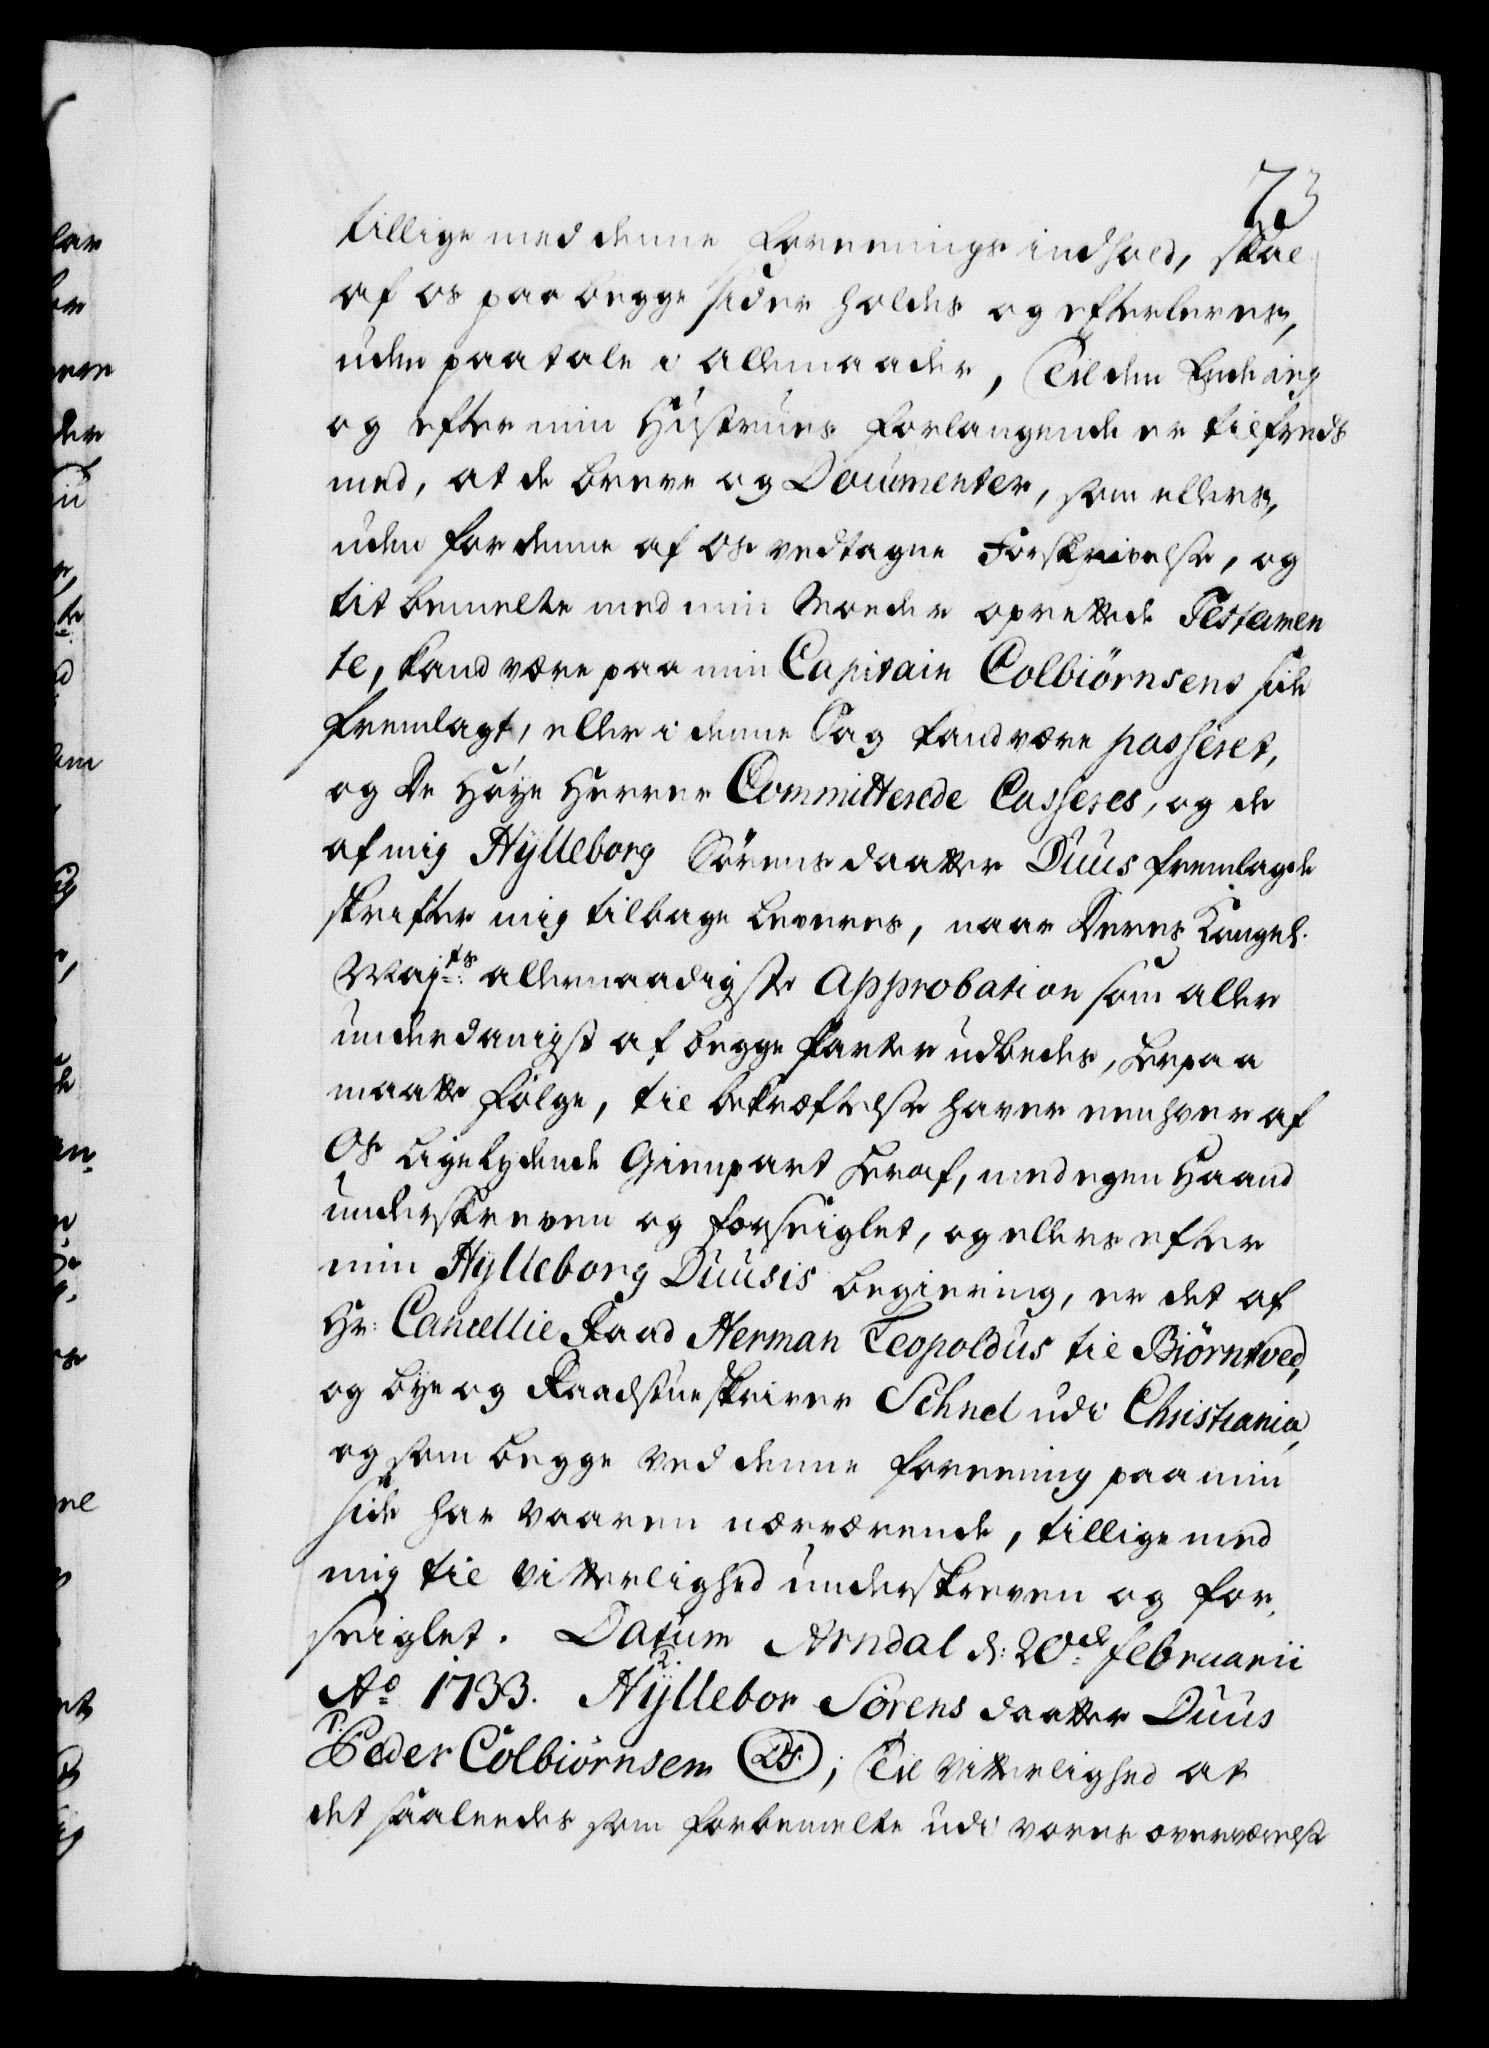 73
tillige med denne Forenings indhold, skal
af os paa begge sider holdes og efterleves,
uden paatale i allemaader, Til den Ende jeg
og efter min Hustrues forlangende er tilfreds
med, at de breve og Documenter, som ellers,
uden for denne af os vedtagne Forskrivelse, og
tit bemelte med min Moder oprettede Testamen
te, kand være paa min Capitain Colbiørnsens side
fremlagt, eller i denne Sag kand være passeret,
og De Høye Herrer Committerede Casseres, og de
af mig Hylleborg Sørens daatter Duus fremlagde
skrifter mig tilbage leveres, naar Deres Kongel.
Maj:ts allernaadigste Approbation som aller
underdanigst af begge Parter udbedes, herpaa
maatte følge, til bekræftelse haver eenhver af
Os ligelydende Gienpart heraf, med egen Haand
underskreven og forseiglet, og ellers efter
min Hylleborg Duusis begiering, er det af
Hr: Cancellie Raad Herman Leopoldus til Biørntved,
og bye og Raadstueskriver Schnel udi Christiania,
og som begge ved denne forening paa min
side har vaaren nærværende, tillige med
mig til Vitterlighed underskreven og for,
seiglet. Datum Arndal d: 20de Februarii
Ao 1733. 2. Hyllebor Sørens daatter Duus
1. Peder Colbiørnsen (LS); Til Vitterlighed at
det saaledes som forbemelte udi vores overværelse